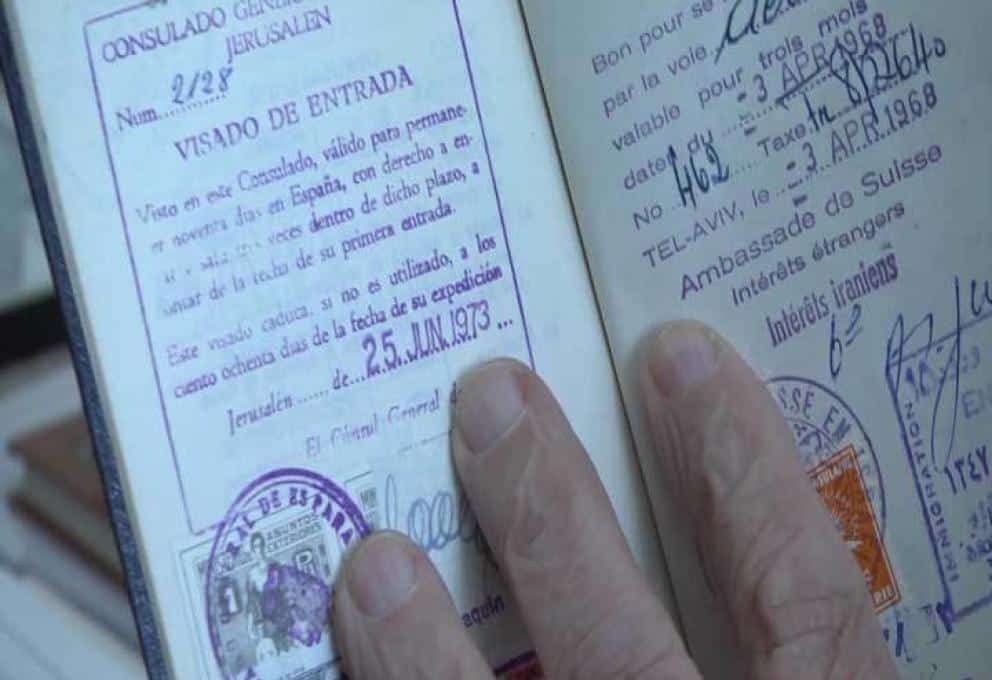 CONSULADO GENERAL
JERUSALEN
Num. 2/28
VISADO DE ENTRADA
Visto en este Consulado, válido para permane-
er noventa dias en España, con derecho a en-
veces dentro de dicho plazo, a
de la fecha de su primera entrada.
Este visado caduca, si no es utilizado, a los
ciento ochenta dias de la fecha de su expedición
Jerusalén ...... de... 25. JUN. 1973 ...
El Cónsul General d
RAL DE ESPAÑA
ASUNTOS
EXTERIORES
1
Bon pour se
par la voie
valable pour trois mois
date du - 3 APR 1968
No 462 Taxe
TEL-AVIV, le - 3 APR 1968
Ambassade de Suisse
Intérêts étrangers
Intérêts iraniens
SSE EN
IMMIGRATION
١٣٤٧